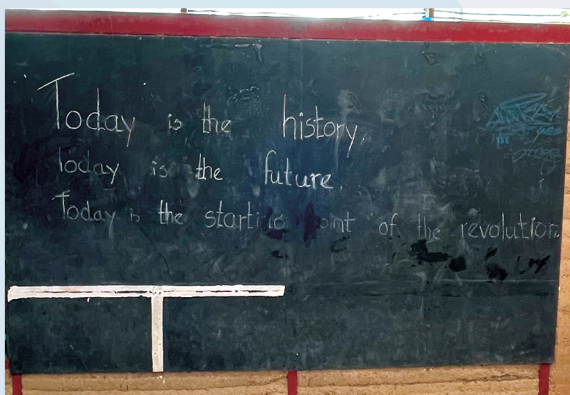 Today is the history,
Today is the future.
Today is the starting point of the revolution.